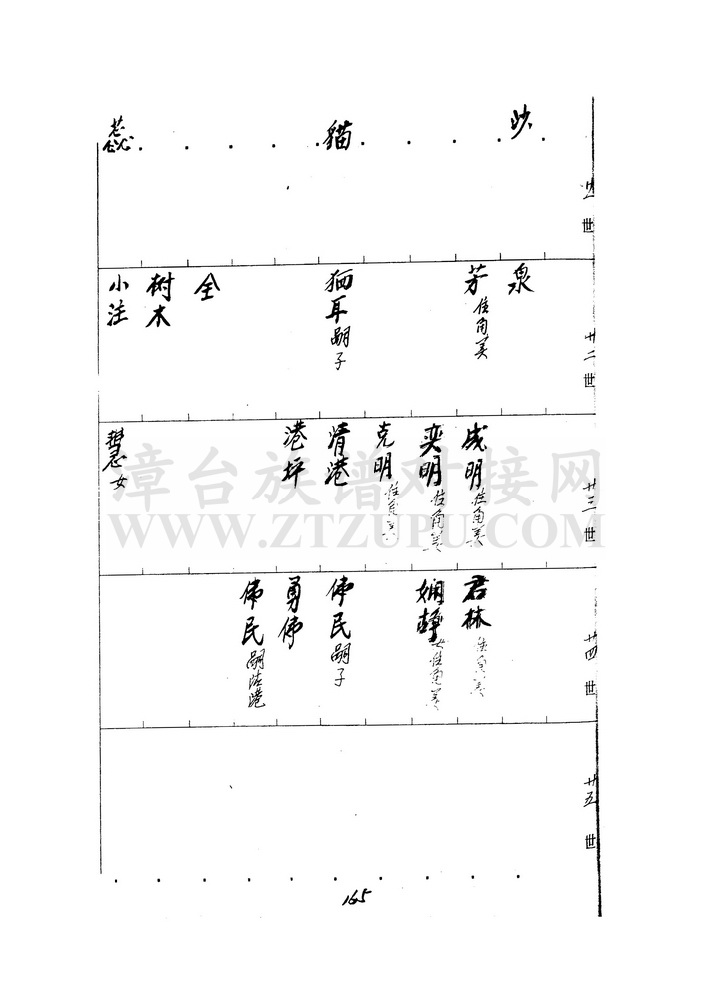 沙
猫
廿一世
泉
芳 住角美
猫耳 嗣子
全
树木
小注
廿二世
成明 住角美
奕明 住角美
克明 住角美
清港
港坪
慧 女
廿三世
君林 住角美
娴静 女住角美
伟民 嗣子
勇伟
伟民 嗣清港
廿四世
廿五世
165
漳台族谱对接网
WWW.ZTZUPU.COM